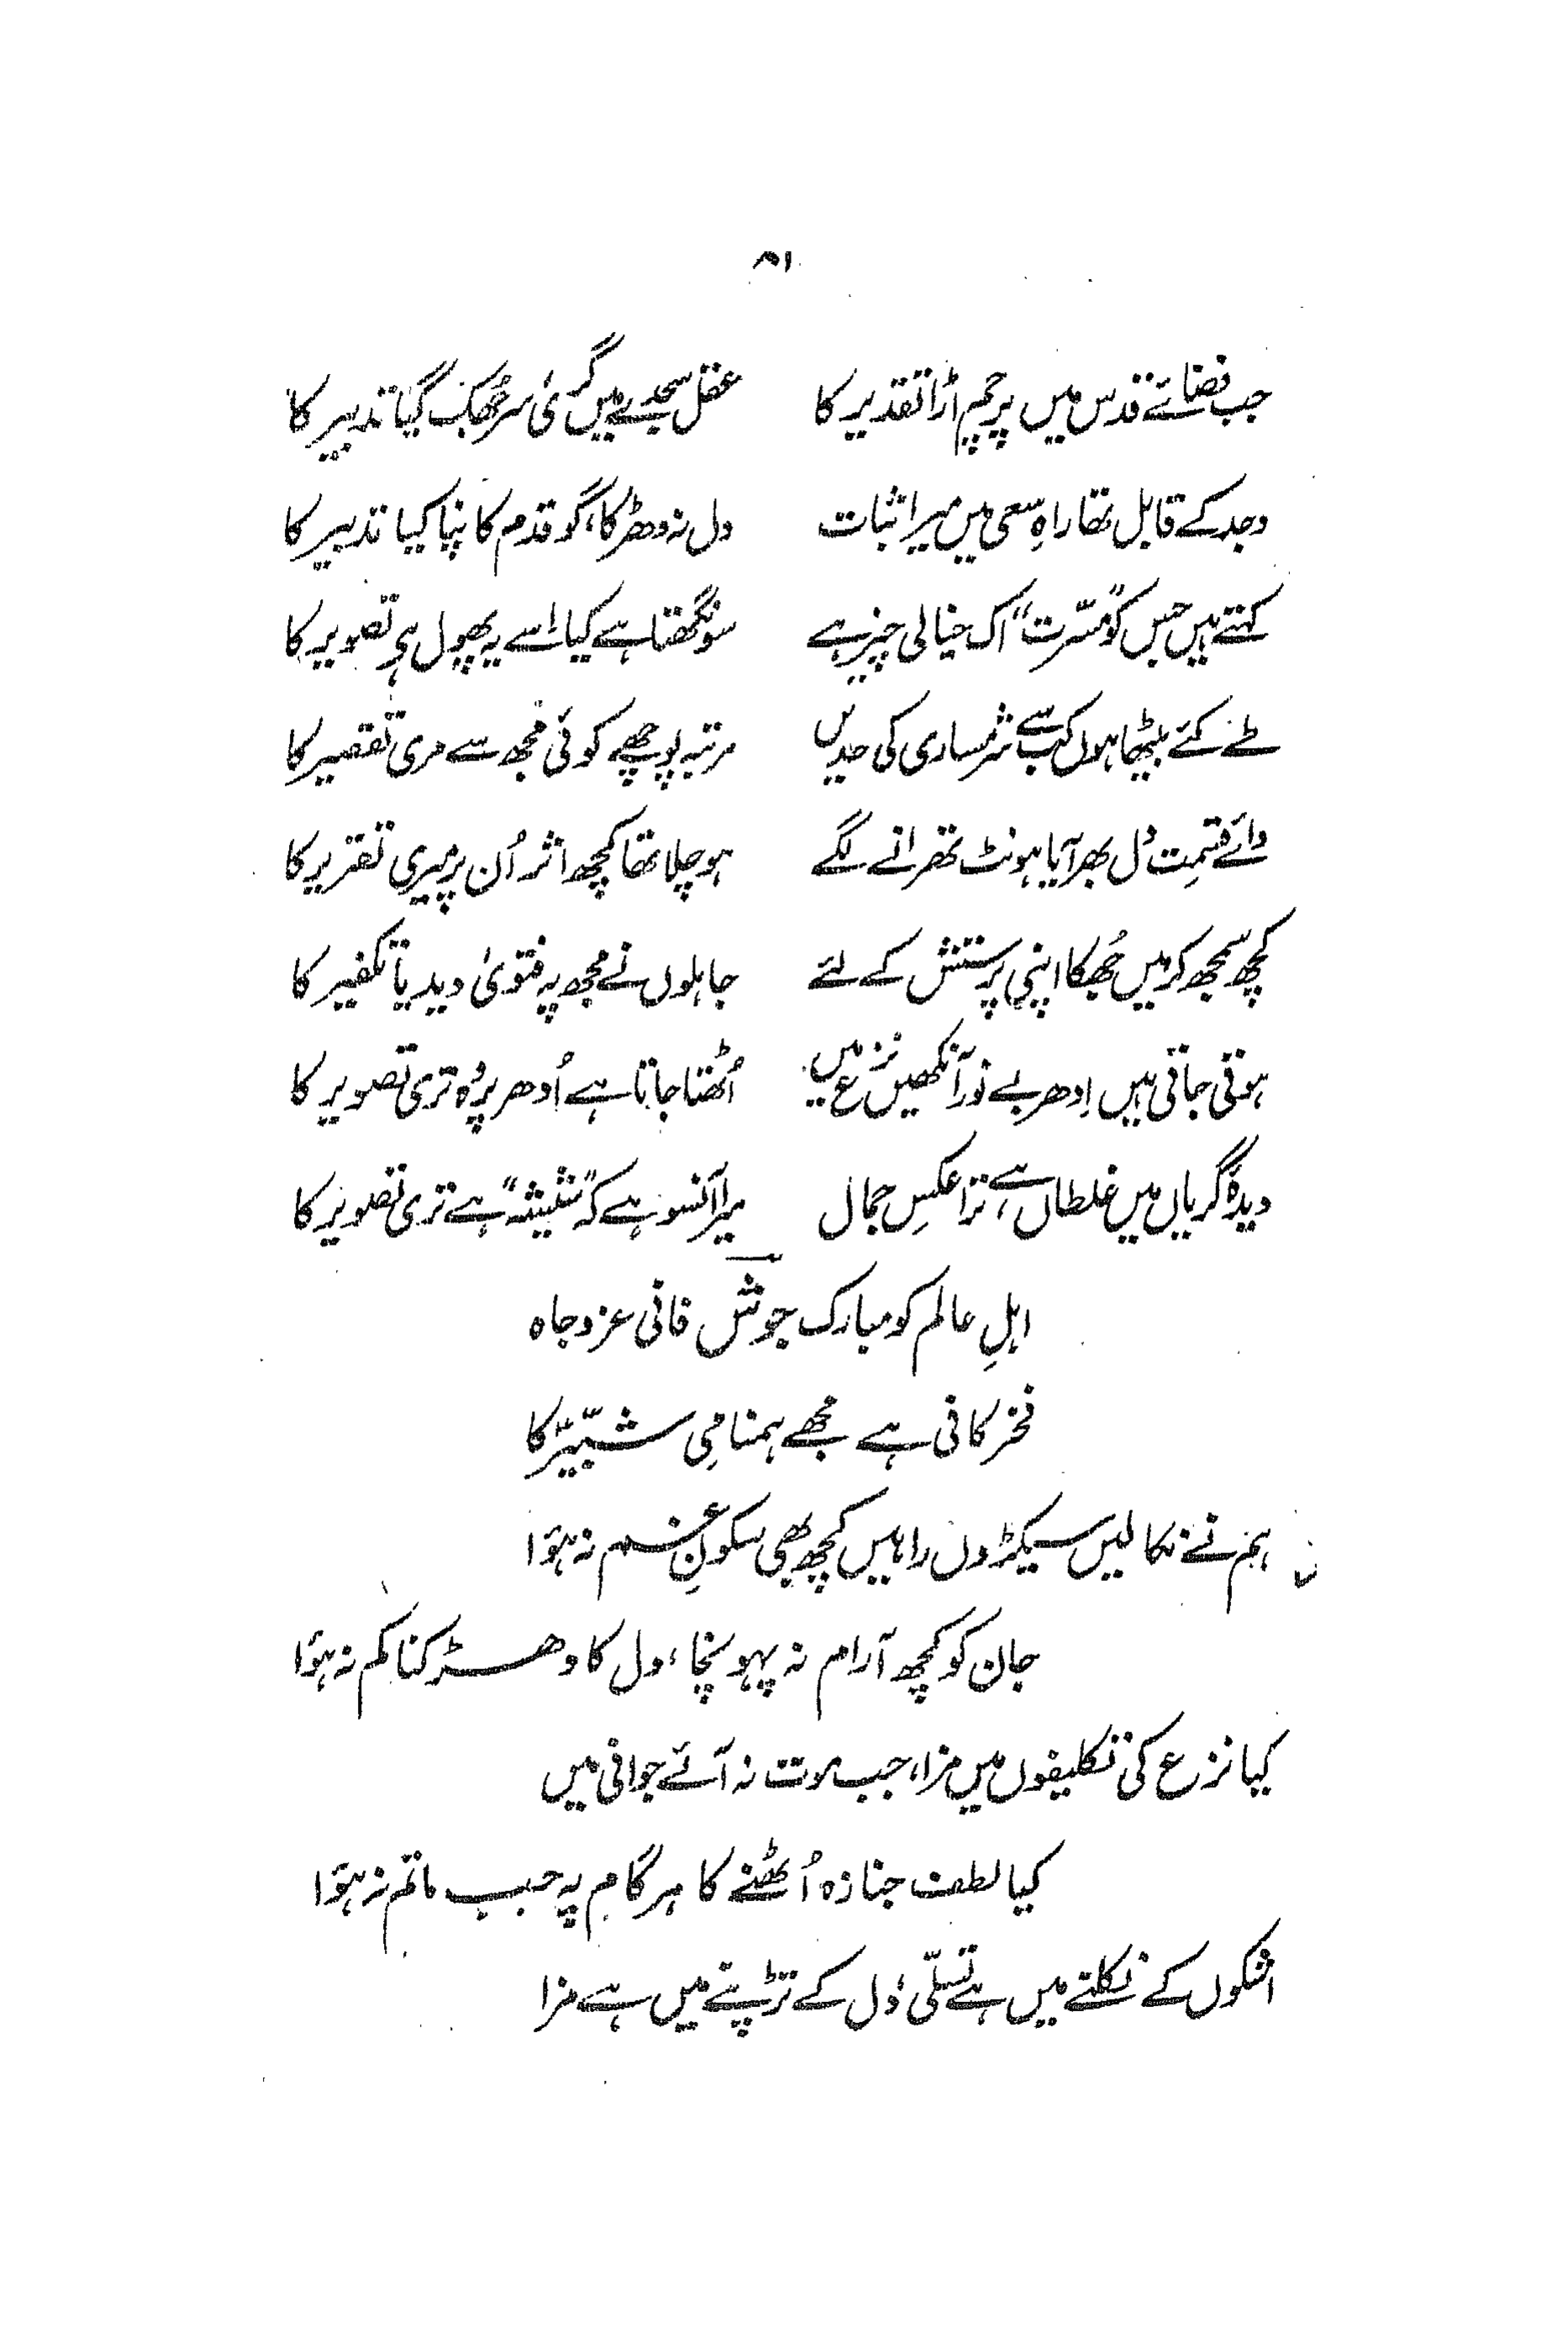 ۸۱
جب فضائے قدس میں پرچم اڑا تقدیر کا عقل سجدے میں گری سر جُھک گیا تدبیر کا
وجد کے قابل تھا راہِ سعی میں میرا ثبات دل نہ دھڑکا، گو قدم کانپا کیا تدبیر کا
کہتے ہیں جس کو "مسّرت" اک خیالی چیز ہے سونگھتا ہے کیا اسے یہ پھول ہے تصویر کا
طے کئے بیٹھا ہوں کب سے شرمساری کی حدیں مرتبہ پوچھے کوئی مجھ سے مری تقصیر کا
وائے قسمت دل بھر آیا ہونٹ تھرانے لگے ہوچلا تھا کچھ اثر اُن پر میری تقریر کا
کچھ سمجھ کر میں جُھکا اپنی پرستش کے لئے جاہلوں نے مجھ پہ فتویٰ دیدیا تکفیر کا
ہوتی جاتی ہیں اِدھر بے نور آنکھیں نزع میں اُٹھتا جاتا ہے اُدھر پردہ تری تصویر کا
دیدۂ گریاں میں غلطاں ہے ترا عکسِ جمال میرا آنسو ہے کہ "شیشہ" ہے تری تصویر کا
اہلِ عالم کو مبارک جوش فانی عزوجاہ
فخر کافی ہے مجھے ہمنامیِ شبّیرؑ کا
ہم نے نکالیں سیکڑوں راہیں کچھ بھی سکونِ غم نہ ہوٗا
جان کو کچھ آرام نہ پہونچا، دل کا دھڑکنا کم نہ ہوٗا
کیا نزع کی تکلیفوں میں مزا، جب موت نہ آئے جوانی میں
کیا لطف جنازہ اُٹھنے کا ہر گام پہ جب ماتم نہ ہوٗا
اشکوں کے نکلنے میں ہے تسلّی، دل کے تڑپنے میں ہے مزا